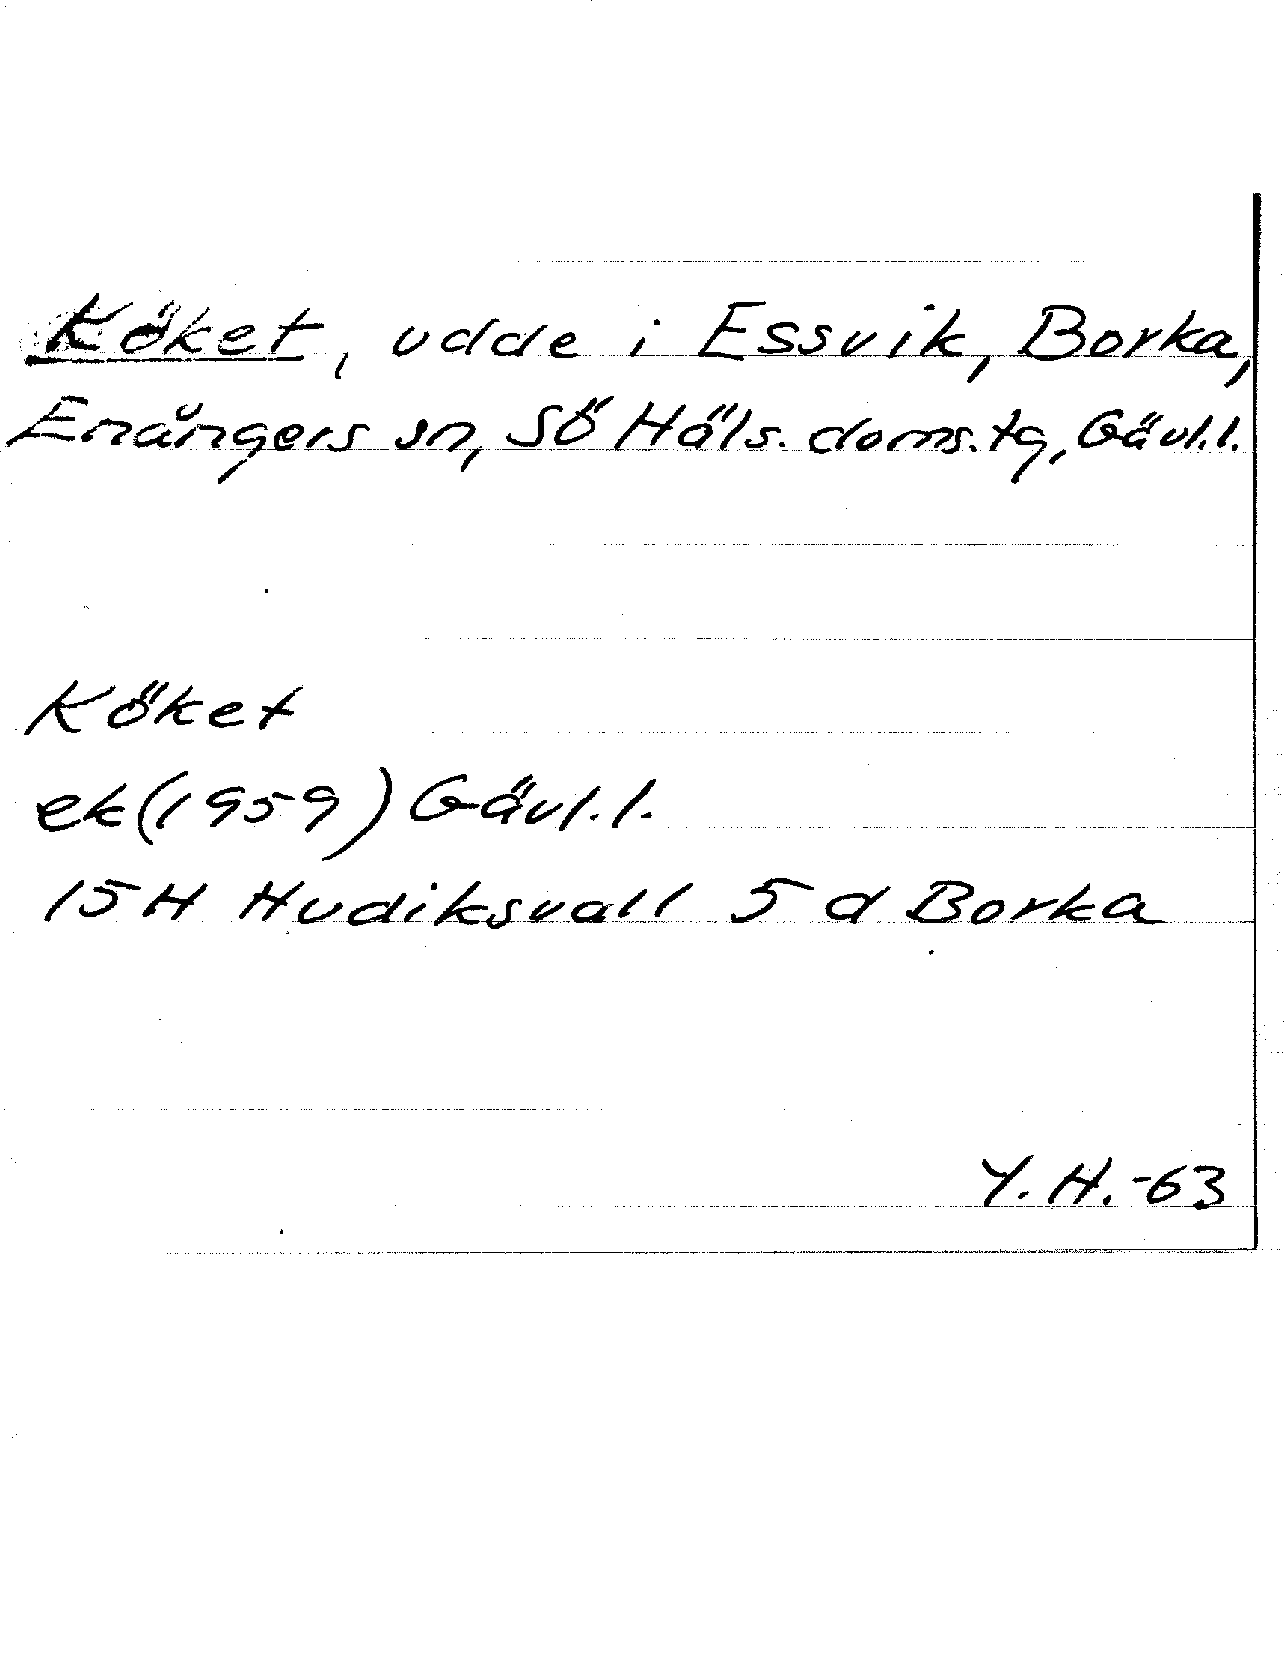 Köket, udde i Essvik, Borka,
Enångers sn, SÖ Häls. doms.tg, Gävl.l.
Köket
ek(1959) Gävl.l.
15H Hudiksvall 5 d Borka
Y.H.-63